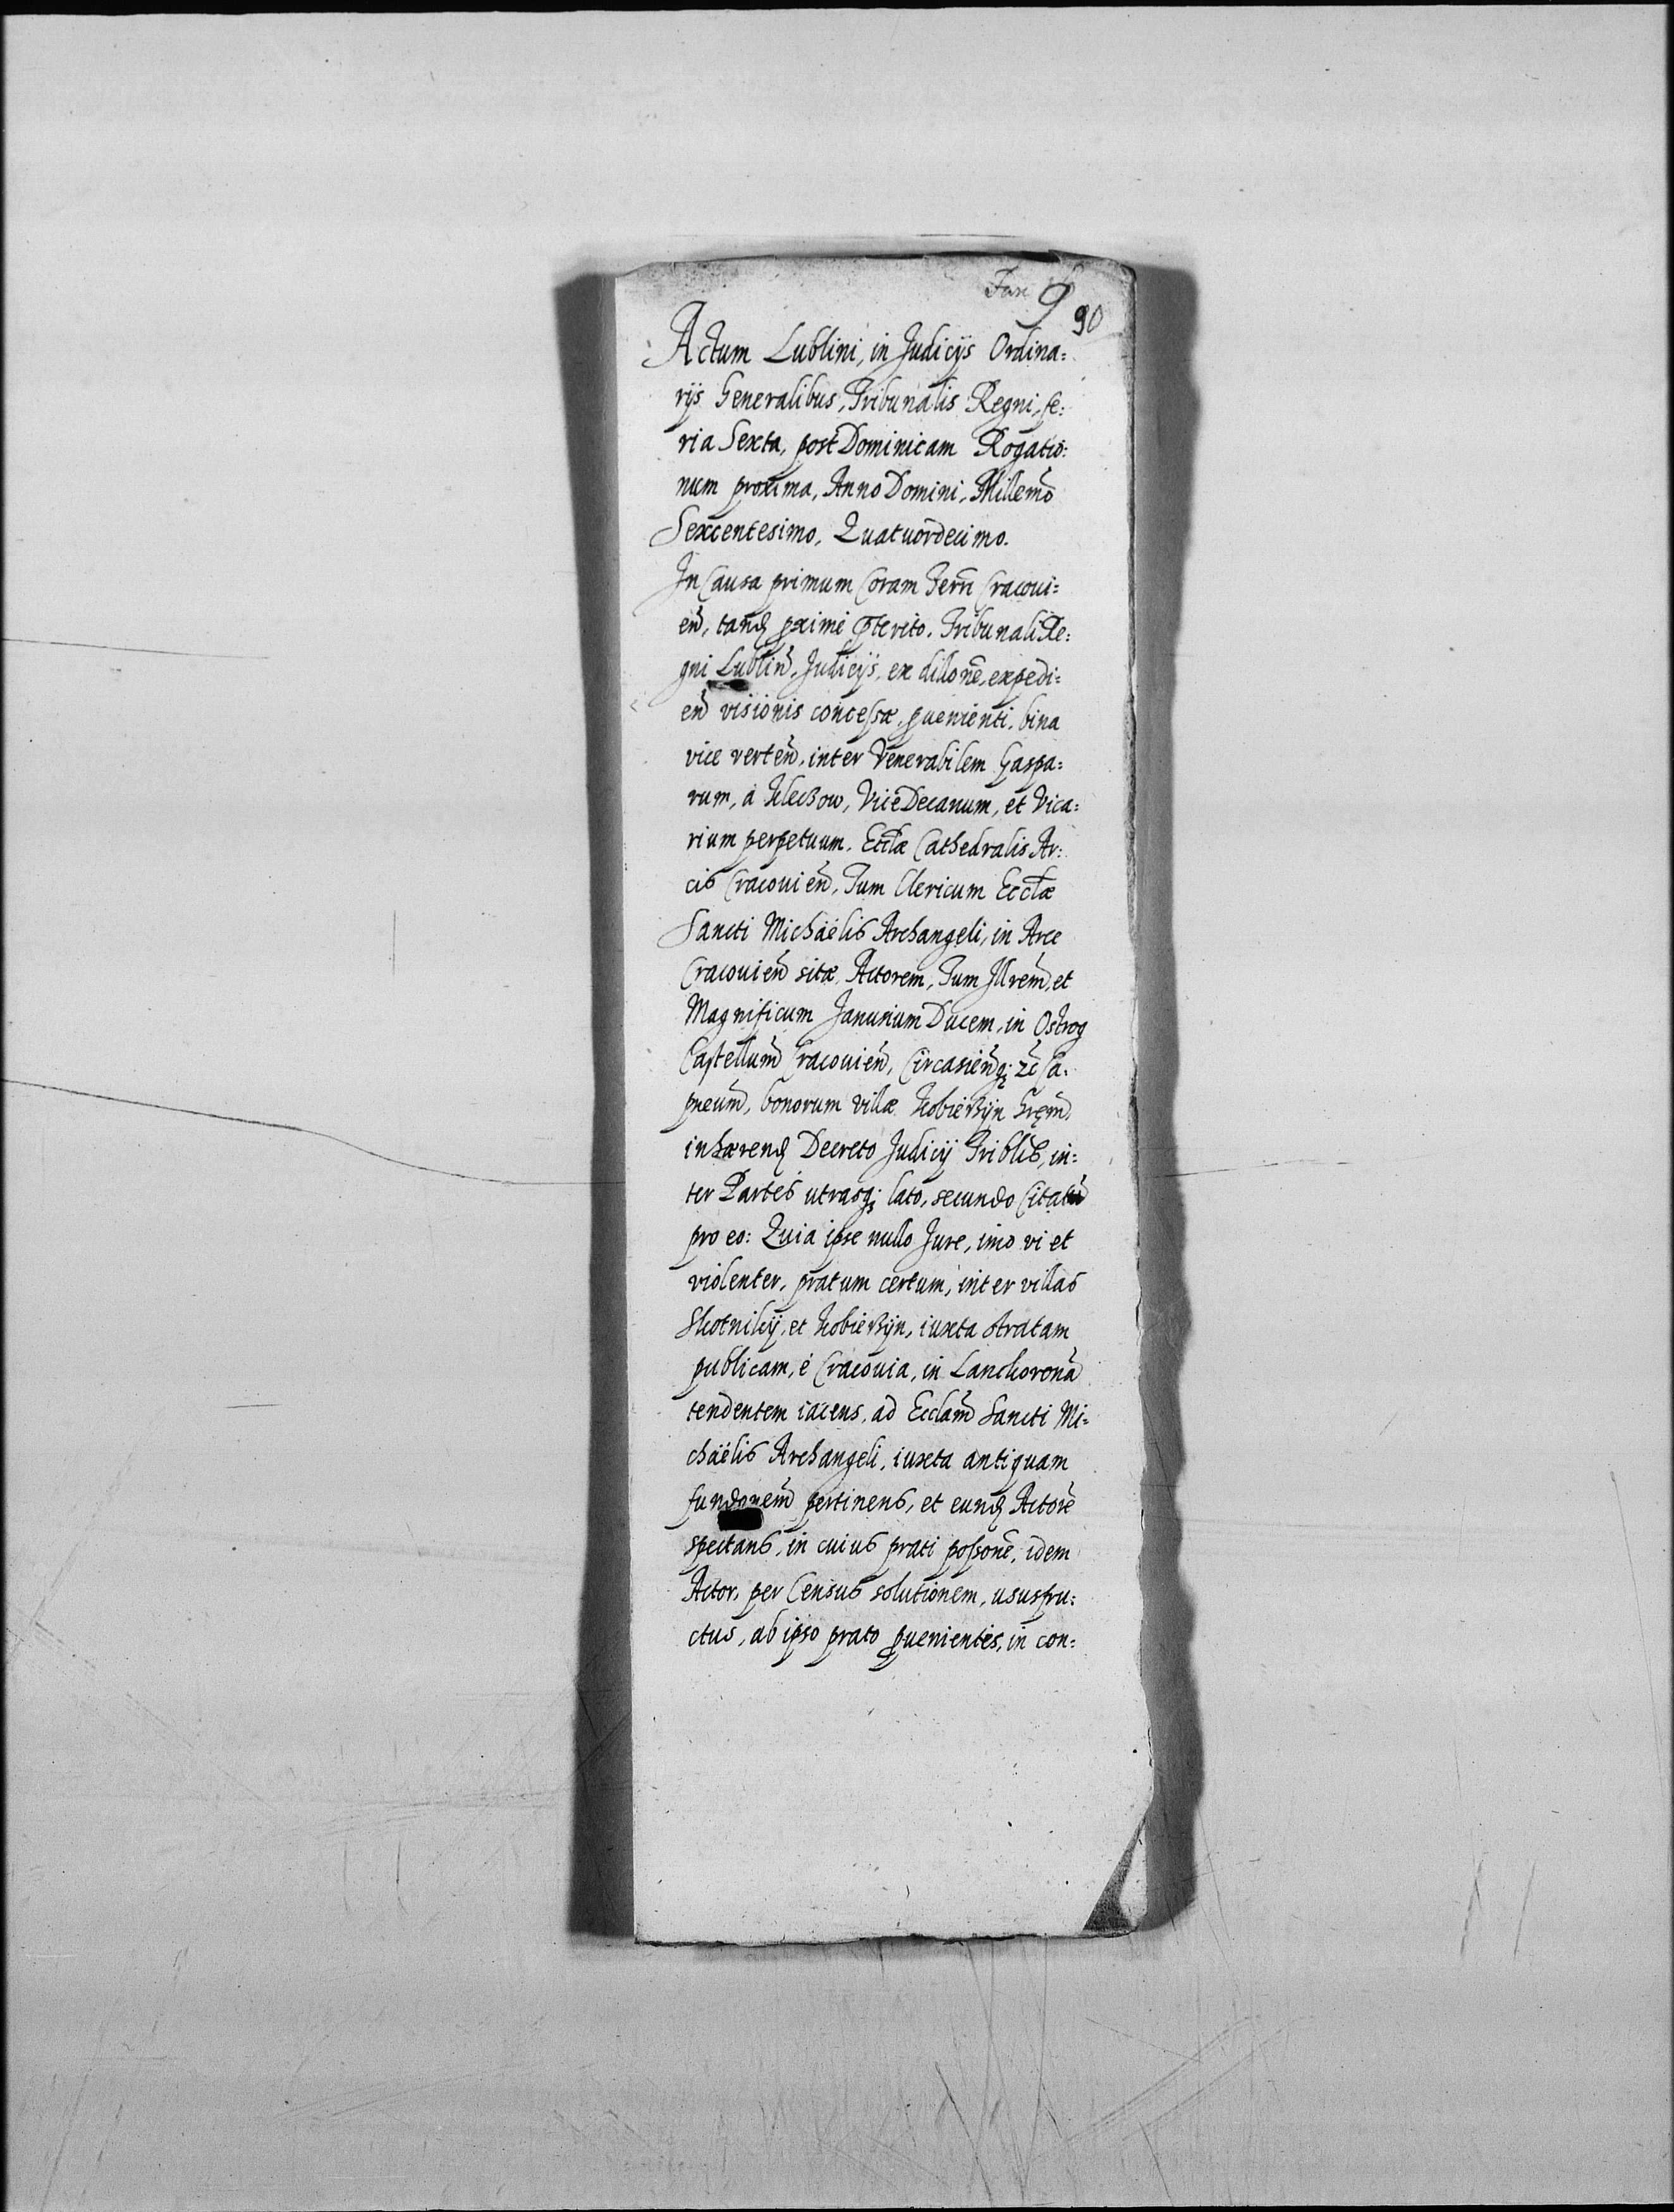 Fun 9
90
Actum Lublini, in Judicijs Ordina=
rijs Generalibus, Tribunalis Regni, fe=
ria Sexta, post Dominicam Rogatio=
num proxima, Anno Domini, Millemo
Sexcentesimo, Quatuordecimo.
In Causa primum Coram Terri Cracoui=
en, tand pximé pterito, Tribunali Re=
gni Lublin, Judicijs, ex dillone, expedi=
en visionis concessæ, puenienti, bina
vice verten, inter Venerabilem Gaspa=
rum, à Kleczow, ViceDecanum, et Vica=
rium perpetuum, Ecclæ Cathedralis Ar=
cis Cracouien, Tum Clericum Ecclæ
Sancti Michäelis Archangeli, in Arce
Cracouien sitæ, Actorem, Tum Illrem, et
Magnificum Janusium Ducem, in Ostrog
Castellum Cracouien, Circasienq; zc Ca=
pneum, bonorum villæ Kobierzÿn hrem,
inhærend Decreto Judicij Triblis, in=
ter Partes utrasq; lato, secundo Citatum
pro eo: Quia ipse nullo Jure, imo vi et
violenter, pratum certum, inter villas
Skotnikÿ, et Kobierzÿn, iuxta stratam
publicam, è Cracouia, in Lanckorona
tendentem iacens, ad Ecclam Sancti Mi=
chäelis Archangeli, iuxta antiquam
fundonem pertinens, et eund Actore
spectans, in cuius prati possone, idem
Actor, per Census solutionem, ususfru=
ctus, ab ipso prato puenientes, in con=